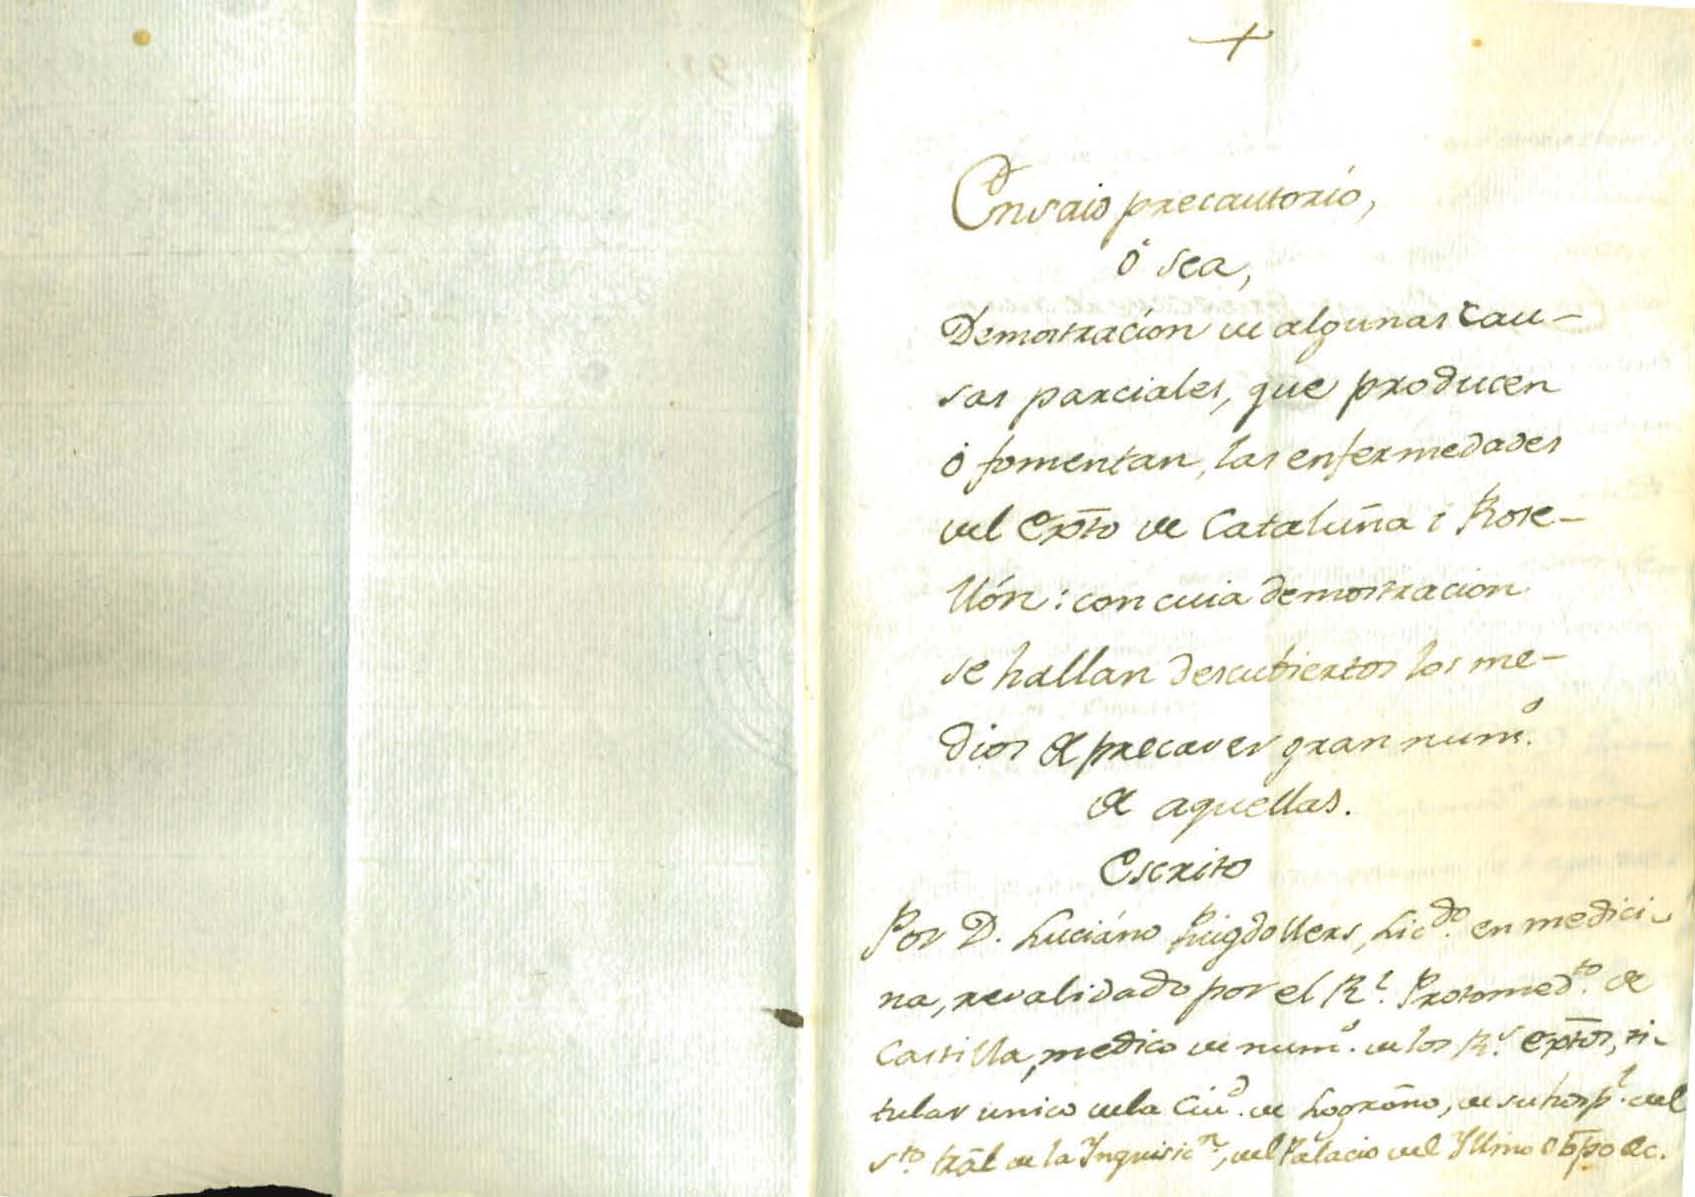 +
Ensaio precautorio,
ó sea,
Demostración de algunas cau-
sas parciales, que producen
ó fomentan, las enfermedades
del Expto de Cataluña i Rose-
llón: con cuia demostracion
se hallan descubiertos los me-
dios de precaver gran numo.
de aquellas.
Escrito
Por D. Luciáno Puigdollers, Licdo. en medici-
na, revalidado por el Rl. Protomedto. de
Castilla, medico de numo. de los Rs. Exptos, ti-
tular unico dela Ciud. de Logroño, de su hospl. del
Sto. tral de la Inquisicn., del Palacio del Yllmo Obpo &c.